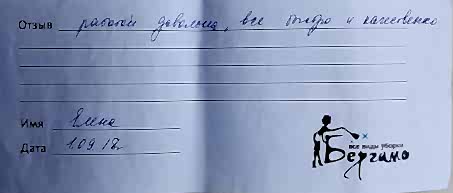 Отзыв работой довольна, все быстро и качественно
Имя Елена
Дата 1.09.18г.
все виды уборки
Бергамо